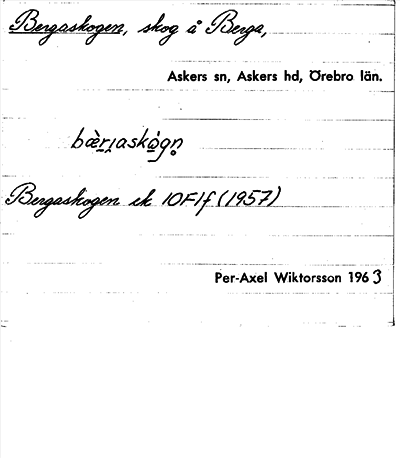 Bergaskogen, skog å Berga,
Askers sn, Askers hd, Örebro län.
bæ̀rjaskógn̥
Bergaskogen ek 10F1f (1957)
Per-Axel Wiktorsson 1963